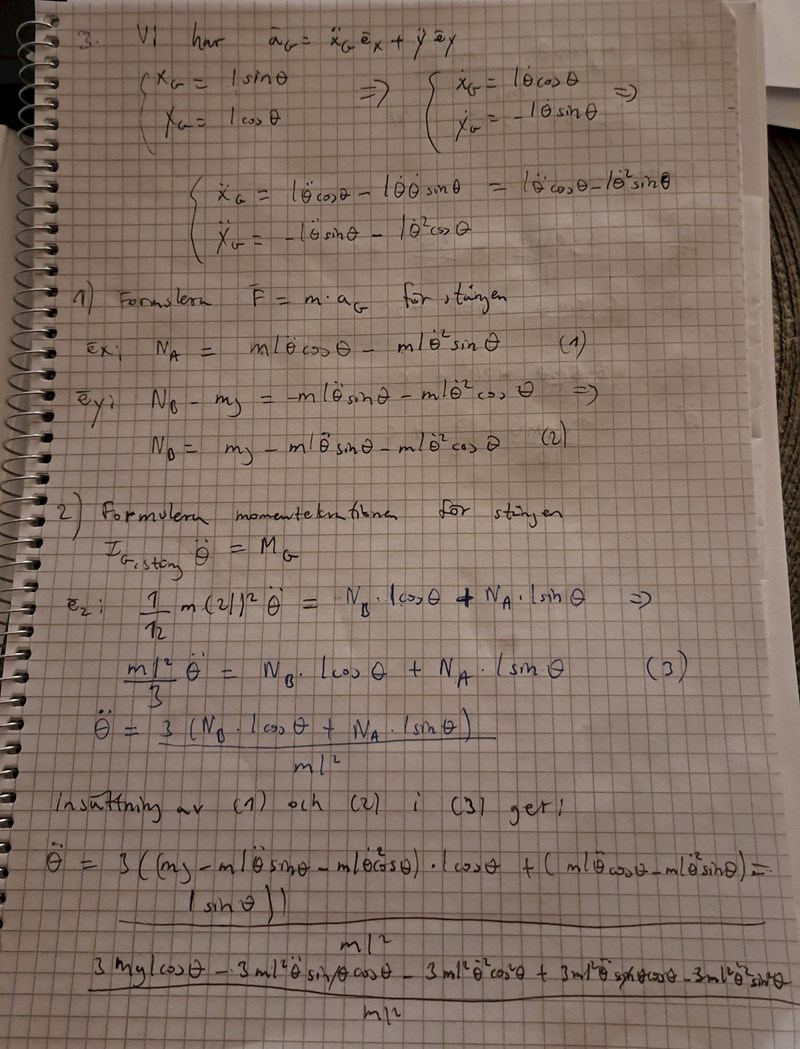 3. Vi har ā_G = ẍ_G ē_x + ÿ ē_y
{ x_G = l sinθ => { ẋ_G = lθ̇ cosθ =>
y_G = l cosθ ẏ_G = -lθ̇ sinθ
{ ẍ_G = lθ̈ cosθ - lθ̇θ̇ sinθ = lθ̈ cosθ - lθ̇² sinθ
ÿ_G = -lθ̈ sinθ - lθ̇² cosθ
1) Formulera F̄ = m·a_G för stången
ēx: N_A = mlθ̈ cosθ - mlθ̇² sinθ (1)
ēy: N_B - mg = -mlθ̈ sinθ - mlθ̇² cosθ =>
N_B = mg - mlθ̈ sinθ - mlθ̇² cosθ (2)
2) Formulera momentekvationen för stången
I_G,stång θ̈ = M_G
ēz: 1/12 m(2l)² θ̈ = N_B · l cosθ + N_A · l sinθ =>
ml²/3 θ̈ = N_B · l cosθ + N_A · l sinθ (3)
θ̈ = 3 (N_B · l cosθ + N_A · l sinθ)
ml²
Insättning av (1) och (2) i (3) ger:
θ̈ = 3((mg - mlθ̈ sinθ - mlθ̇² cosθ) · l cosθ + (mlθ̈ cosθ - mlθ̇² sinθ) =
l sinθ))
ml²
3mgl cosθ - 3ml²θ̈ sinθ cosθ - 3ml²θ̇² cos²θ + 3ml²θ̈ sinθ cosθ - 3ml²θ̇² sin²θ
ml²